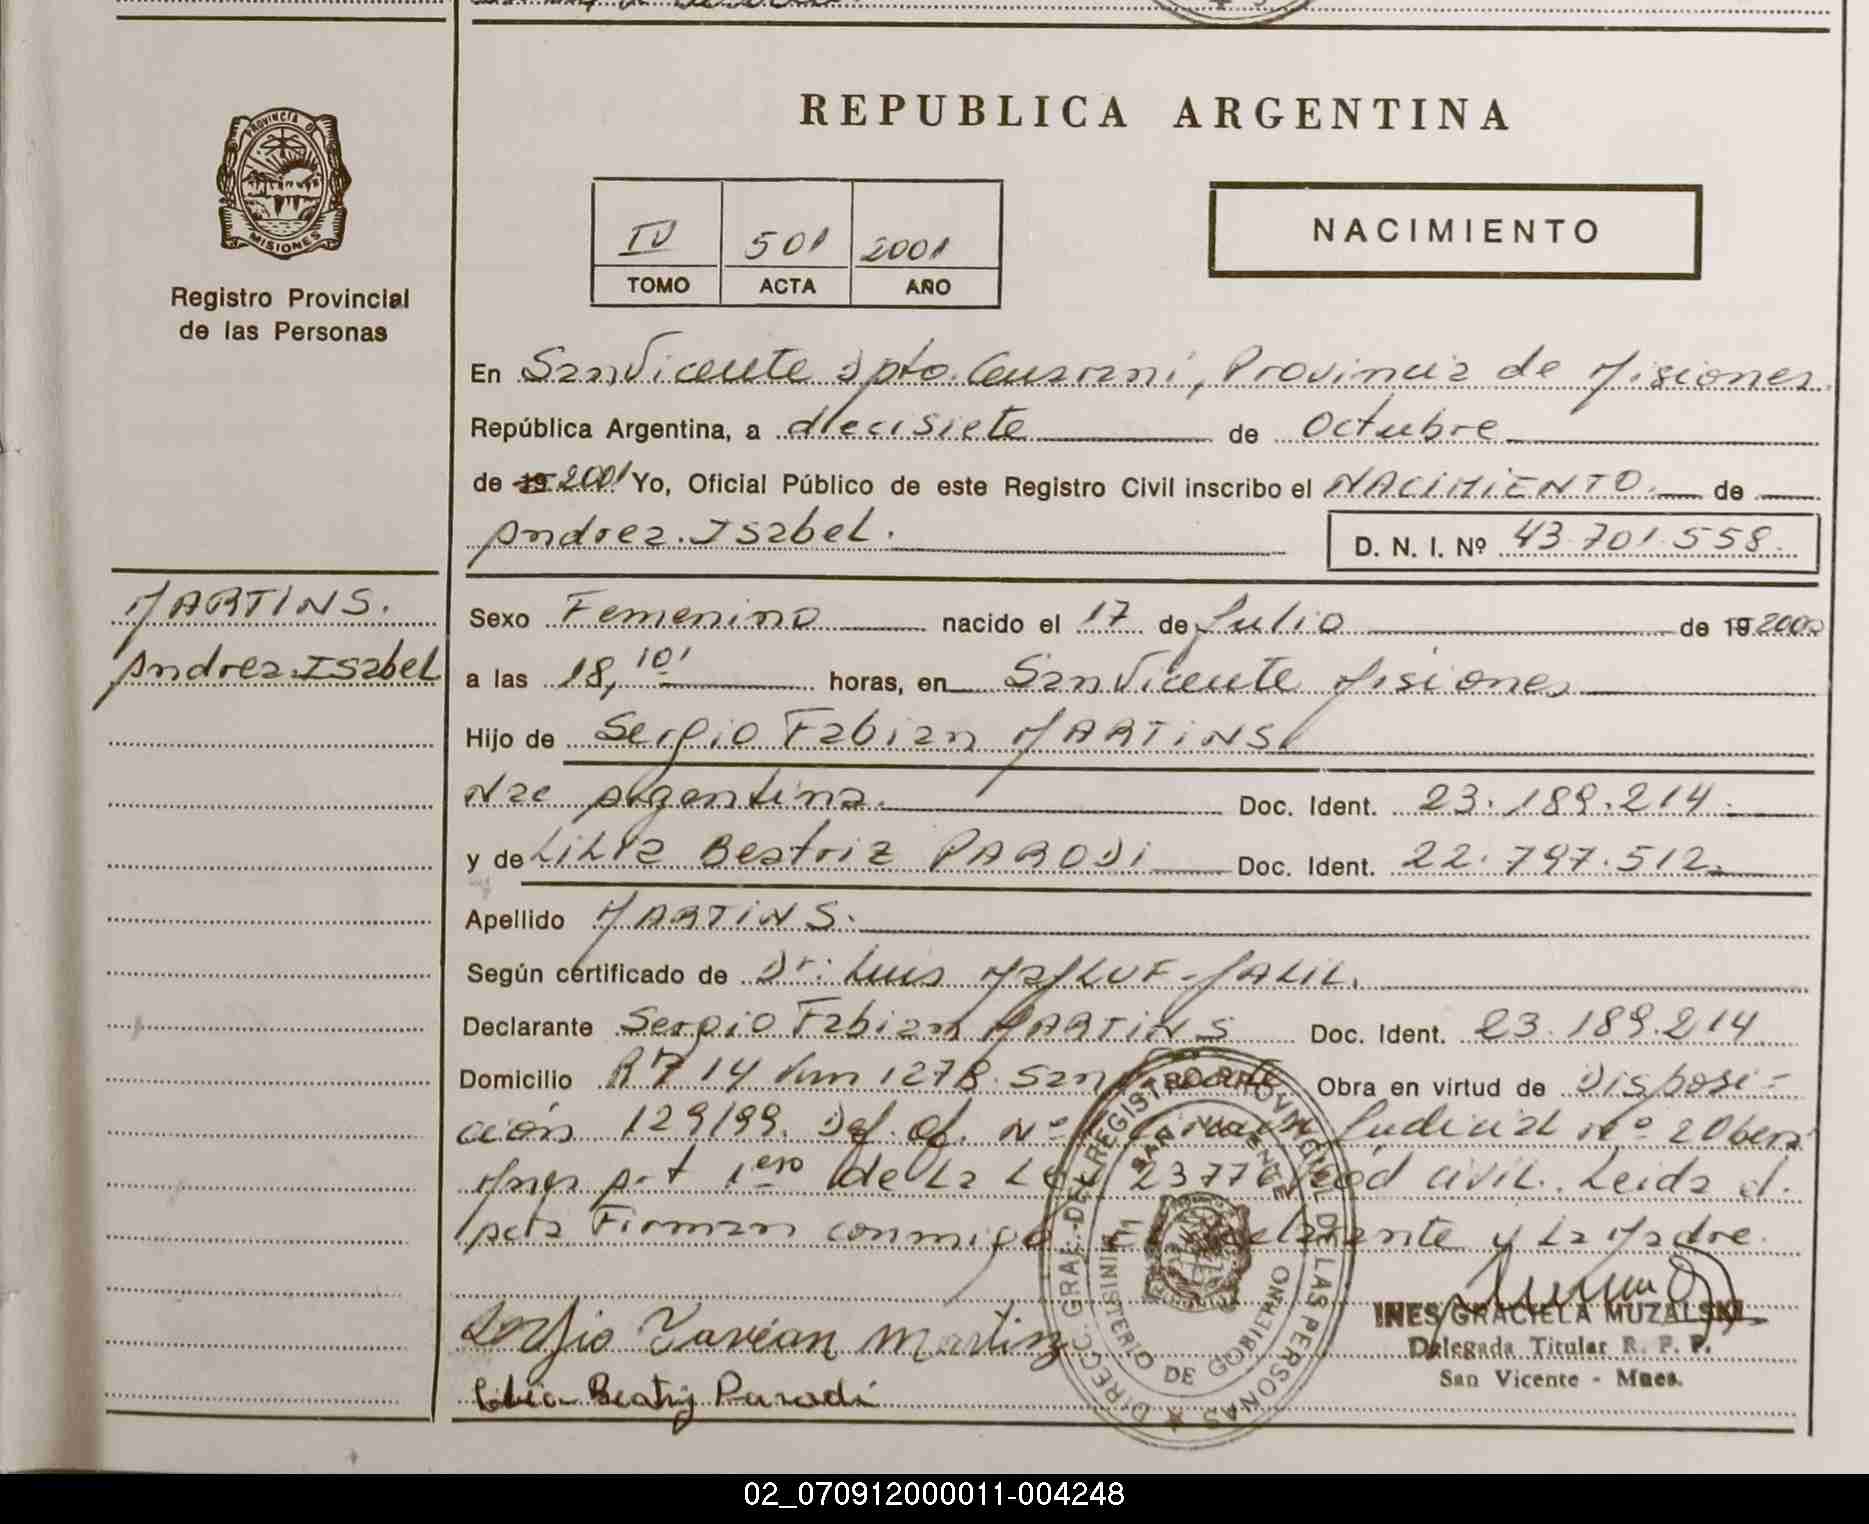 REPUBLICA ARGENTINA
PROVINCIA DE
MISIONES
Registro Provincial
de las Personas
IV 501 2001
TOMO ACTA AÑO
NACIMIENTO
En San Vicente Dpto. Guarani, Provincia de Misiones
República Argentina, a diecisiete de Octubre
de 19 2001 Yo, Oficial Público de este Registro Civil inscribo el NACIMIENTO de
Andrea Isabel. D. N. I. Nº 43.701.558
MARTINS.
Andrea Isabel
Sexo Femenino nacido el 17 de Julio de 19 2000
a las 18,10' horas, en San Vicente Misiones
Hijo de Sergio Fabian MARTINS
Nac Argentina. Doc. Ident. 23.189.214
y de Lilia Beatriz PARODI Doc. Ident. 22.797.512
Apellido MARTINS.
Según certificado de Dr. Luis MAJLUF-JALIL.
Declarante Sergio Fabian MARTINS Doc. Ident. 23.189.214
Domicilio 14 km 1278 San Vicente Obra en virtud de Disposi=
ción 129/99. Def. of. Nº Judicial Nº 2 Obera
Mnes Art 1ero de La Ley 23776 Cod Civil. Leida el
Acta Firman conmigo El Declarante y La Madre.
DIRECC. GRAL. DEL REGISTRO PROVINCIAL DE LAS PERSONAS
MINISTERIO DE GOBIERNO
SAN VICENTE
INES GRACIELA MUZALSKI
Delegada Titular R. P. P.
San Vicente - Mnes.
Sergio Favian Martins
Lilia Beatriz Parodi
02_070912000011-004248